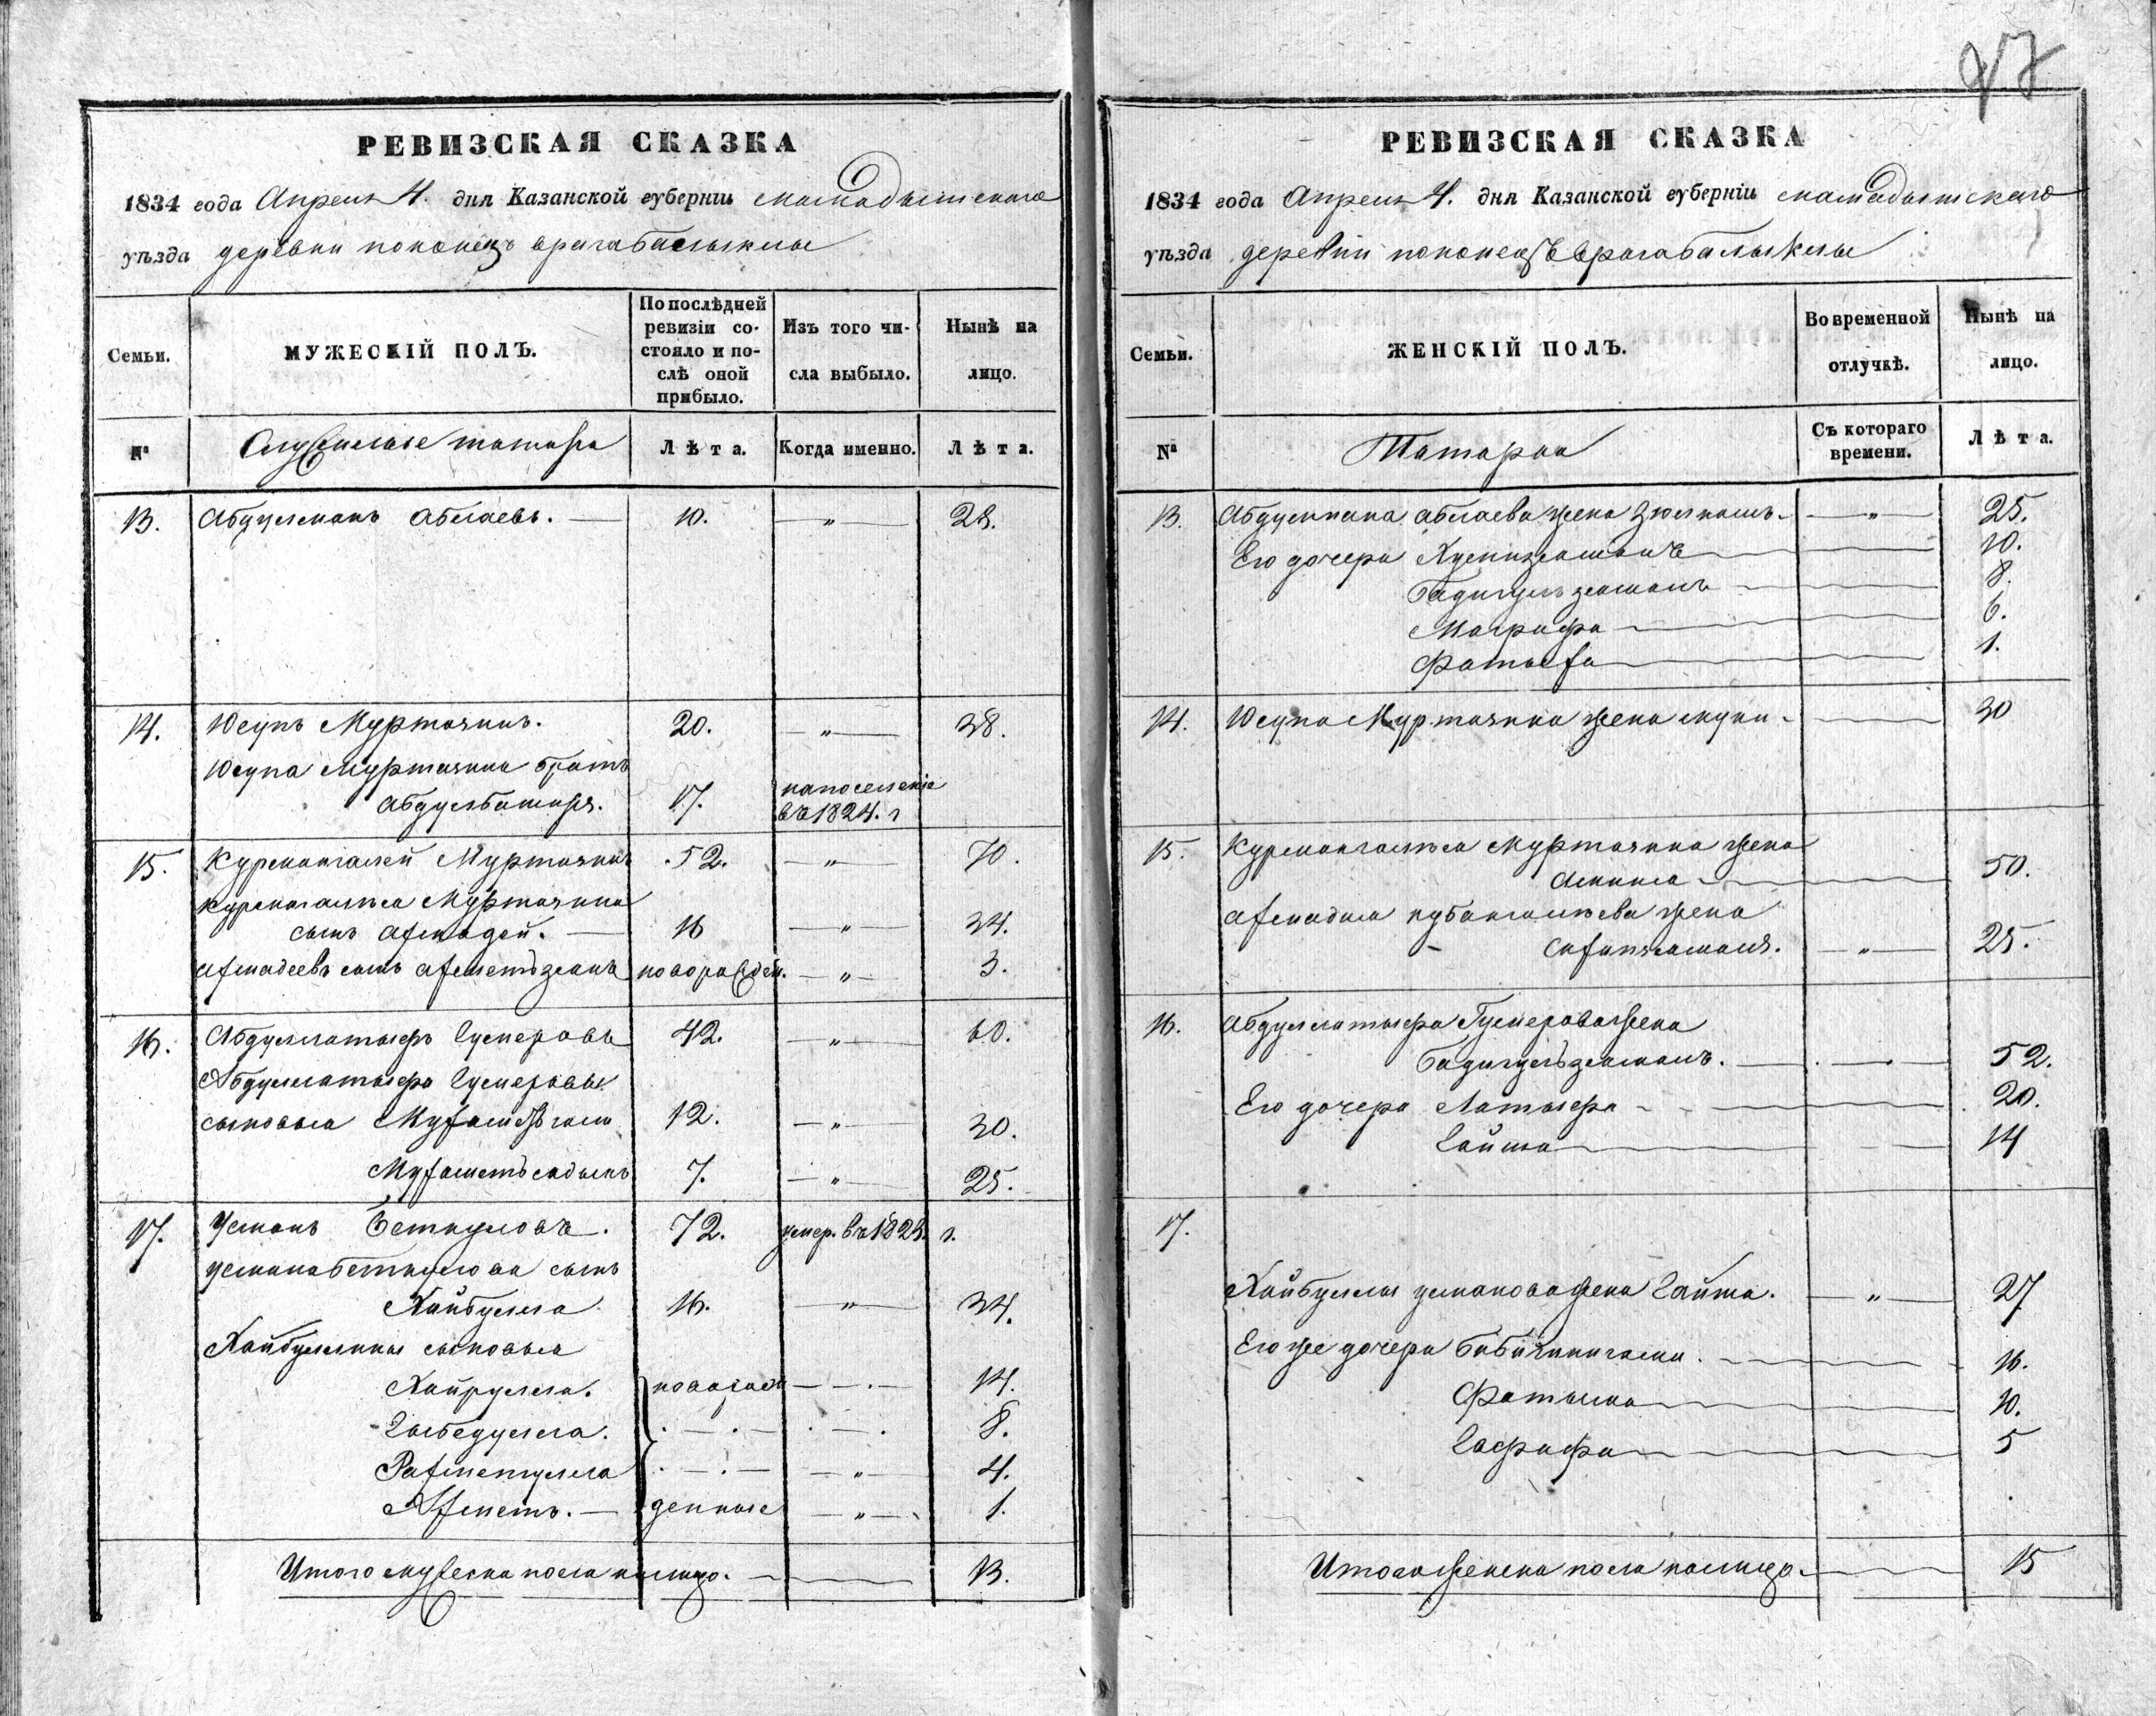 97
РЕВИЗСКАЯ СКАЗКА
1834 года Апреля 4. дня Казанской губерніи мамадышскаго
уѣзда деревни поконецъ врага балыклы
Семьи.
МУЖЕСКІЙ ПОЛЪ.
По послѣдней ревизіи состояло и послѣ оной прибыло.
Изъ того числа выбыло.
Нынѣ на лицо.
№
татара
Лѣта.
Когда именно.
Лѣта.
13. Абдулманъ Аблаевъ. — 10. — „ — 28.
14. Юсупъ Муртазинъ. 20. — „ — 38.
Юсупа Муртазина братъ
Абдулбашыръ. 17. напоселеніе
въ 1824. г
15. Курмангалей Муртазинъ 52. — „ — 70.
Курмангалея Муртазина
сынъ Ахмадей. — 16 — „ — 34.
Ахмадеевъ сынъ Ахметзянъ новорожден. — „ — 3.
16. Абдуллатыфъ Гумеровъ 42. — „ — 60.
Абдуллатыфа Гумеровы
сыновья 12. — „ — 30.
Мухаметъсадыкъ 7. — „ — 25.
17. Усманъ Беткуловъ. 72. умер. въ 1828. г.
Усмана Беткулова сынъ
Хайбулла 16. — „ — 34.
Хайбуллины сыновья
Хайрулла. новорож — 14.
8.
Рахметулла — „ — 4.
Ахметъ. — денные — „ — 1.
Итого мужеска пола налицо. — 13.
РЕВИЗСКАЯ СКАЗКА
1834 года Апреля 4. дня Казанской губерніи мамадышскаго
уѣзда деревни поконецъ врага балыклы
Семьи.
ЖЕНСКІЙ ПОЛЪ.
Во временной отлучкѣ.
Нынѣ на лицо.
№
Татарки
Съ котораго времени.
Лѣта.
13. Абдулмана Аблаева жена — „ — 25.
Его дочери 10.
Бадигулъзямалъ 8.
Маграфа 6.
1.
14. Юсупа Муртазина жена 30
15. Курмангалея Муртазина жена
50.
Ахмадея курбангалеева жена
— „ — 25.
16. Абдуллатыфа Гумерова жена
Бадигулъзямалъ. 52.
Его дочери Латыфа 20.
Гайша 14
17.
Хайбуллы усманова жена Гайша. — „ — 27
Его же дочери 16.
Фатыма 10.
Гафифа 5
Итого женска пола налицо. 15